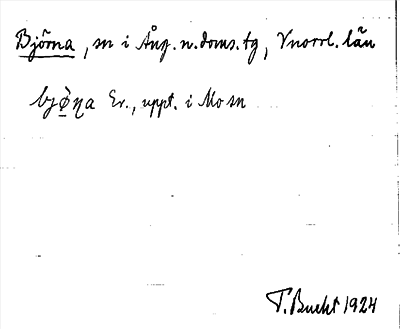 Björna, sn i Ång. n. doms. tg, Vnorrl. län
Er., uppt. i Mo sn
T. Bucht 1924